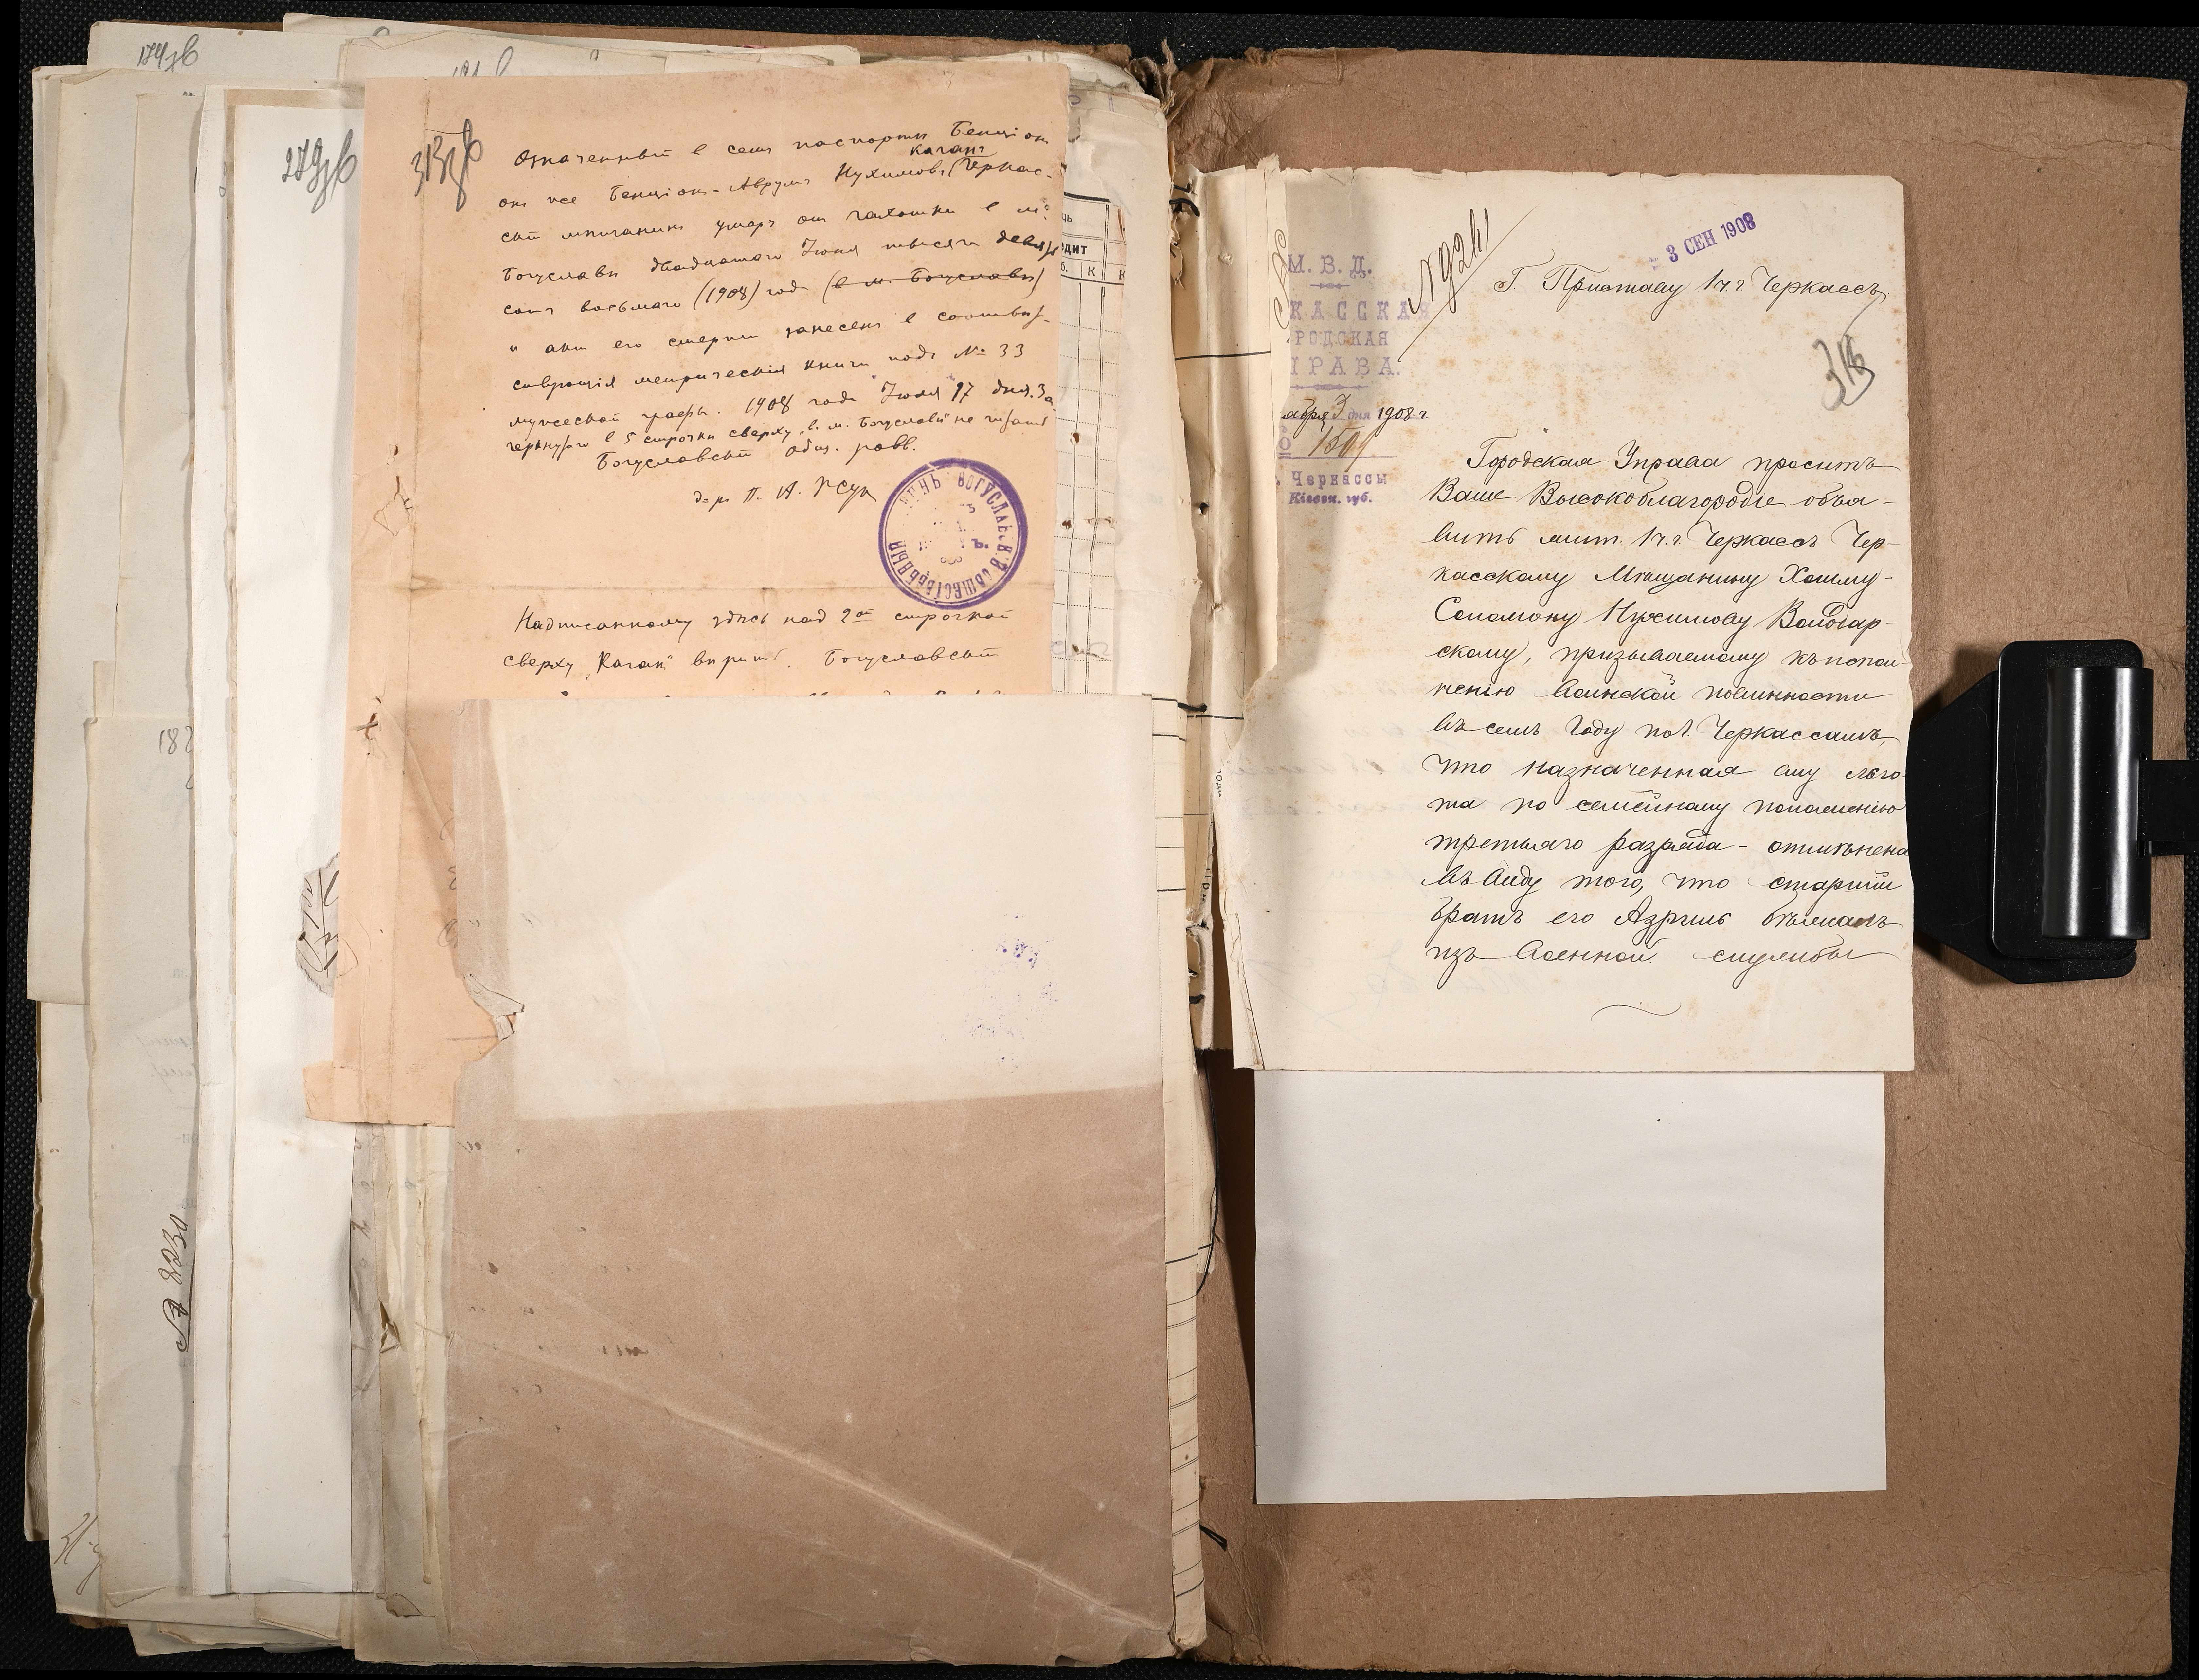 174 зв
279 зв
313 зв
Означенный в семъ паспортѣ Бенціон
Каганъ
он же Бенціон-Аврумъ Нухимовъ Черкас-
скій мѣщанинъ умеръ от чахотки в м.
Богуславѣ двадцатаго Іюня тысяча девят
сотъ восьмаго (1908) года (в м. Богуславѣ)
и акт его смерти занесенъ в соотвѣт-
ствующія метрическія книги подъ № 33
мужеской графы. 1908 года Іюля 17 дня. За
черкнутаго в 5 строчкѣ сверху "в. м. Богуславѣ" не читать
Богуславскій общ. равв.
Надписанному здѣсь над 2ой строчкой
сверху "Каган" вѣрить. Богуславскій
№ 8230
3 СЕН 1908
№ 9241
М. В. Д.
КАССКАЯ
РОДСКАЯ
ПРАВА.
абря 3 дня 1908 г.
Черкассы
Кіевск. губ.
Г. Приставу 1 ч. г. Черкассъ.
Городская Управа проситъ
Ваше Высокоблагородіе объя-
вить жит. 1 ч. г. Черкассъ Чер-
касскому Мѣщанину Хаиму-
Соломону Нухимову Володар-
скому, призываемому къ испол-
ненію воинской повинности
въ семъ году по г. Черкассамъ,
что назначенная ему льго-
та по семейному положенію
третьяго разряда - отмѣнена
въ виду того, что старшій
братъ его Азріилъ бѣжалъ
изъ военной службы